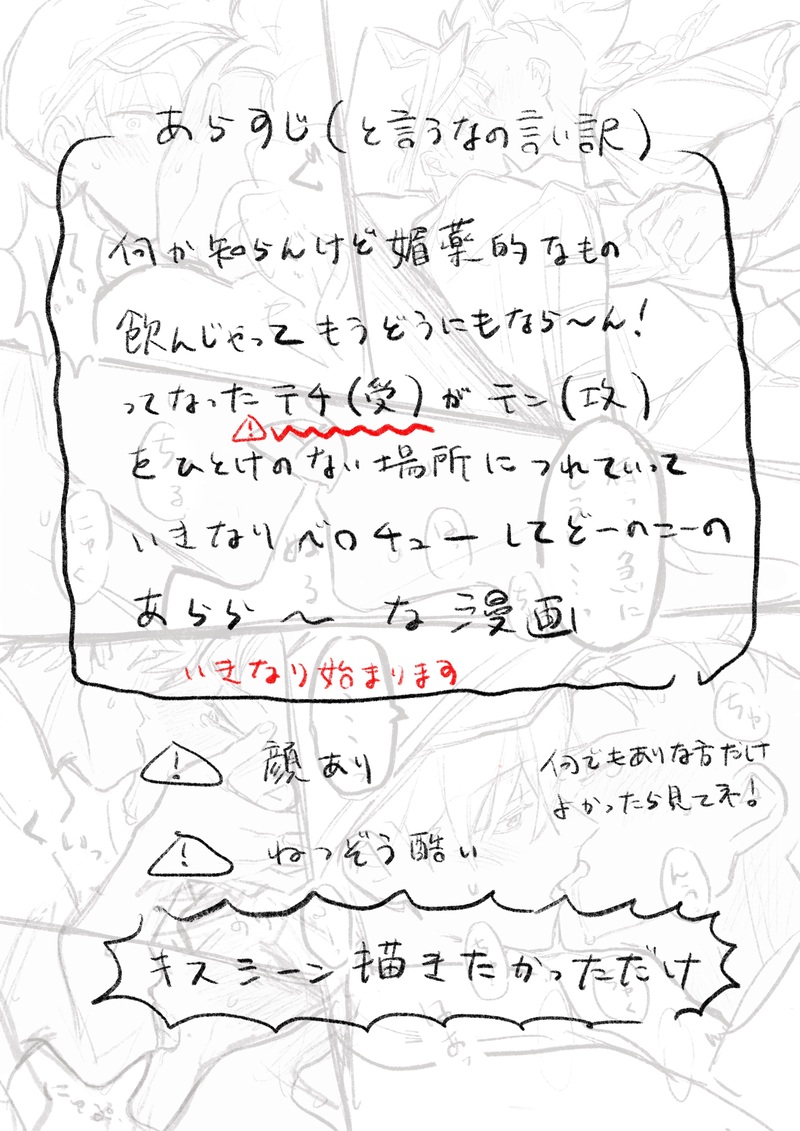 あらすじ(と言うなの言い訳)
何か知らんけど媚薬的なもの
飲んじゃってもうどうにもなら〜ん!
ってなったテチ(受)がモン(攻)
をひとけのない場所につれていって
いきなりベロチューしてどーのこーの
あらら〜な漫画
いきなり始まります
顔あり
何でもありな方だけ
よかったら見てネ!
ねつぞう酷い
キスシーン描きたかっただけ
ちゅ
んっ
にゅく